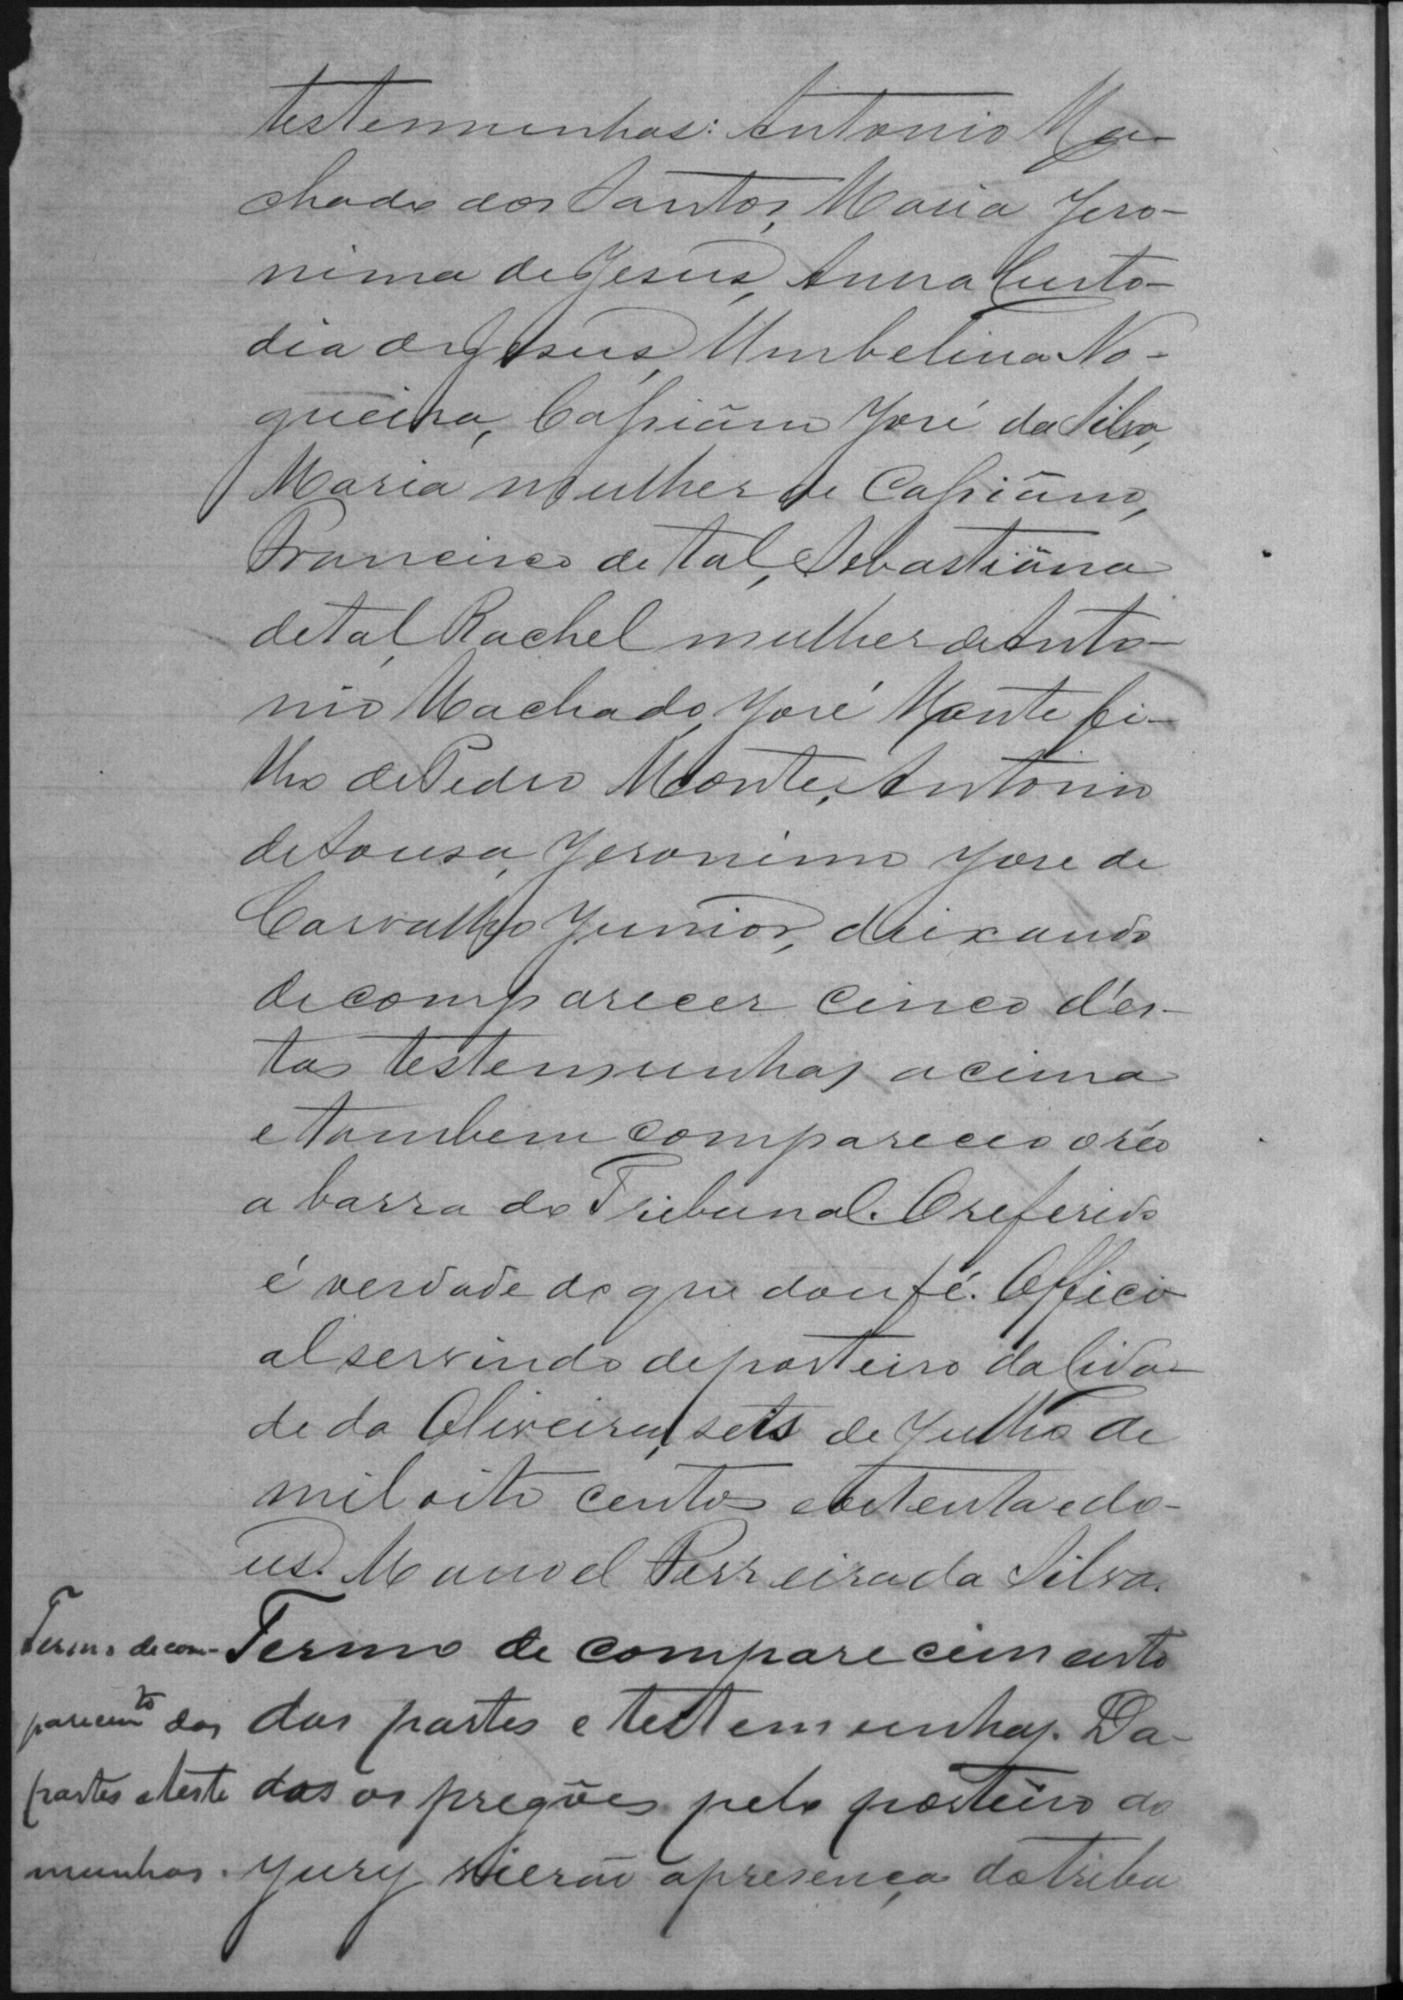 testemunhas: Antonio Ma-
chado dos Santos, Maria Jero-
nima de Jesus, Anna Custo-
dia de Jesus, Umbelina No-
gueira, Cassiãno José da Silva,
Maria mulher de Cassiãno,
Francisco de tal, Sebastiãna
de tal, Rachel mulher de Anto-
nio Machado, José Monte fi-
lho de Pedro Monte, Antonio
de Sousa, Jeronimo Jose de
Carvalho Junior, deixando
de comparecer cinco d'es-
tas testemunhas acima
e tambem compareceo o réo
a barra do Tribunal. O referido
é verdade do que dou fé. Offici-
al servindo de porteiro da Cida-
de da Oliveira, seis de Julho de
mil oito centos e oitenta e do-
us. Manoel Ferreira da Silva.
Termo de comparecimento
das partes e testemunhas. Da-
dos os pregões pelo porteiro do
Jury vierão a presença do tribu
Termo de com-
parecimto das
partes e teste
munhas.